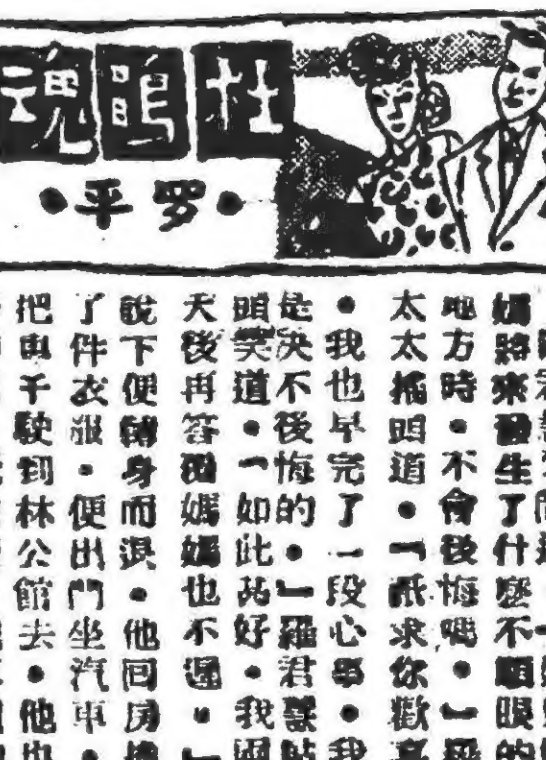 杜鵑魂
•罗平•
媽將來發生了什麼不順眼的
地方時•不會後悔嗎•」羅
太太搖頭道•「祇求你歡喜
•我也早完了一段心事•我
是決不後悔的•」羅君毅點
頭笑道•「如此甚好•我兩
天後再答覆媽媽也不遲•」
說下便轉身而退•他回房換
了件衣服•便出門坐汽車•
把車子駛到林公館去•他也